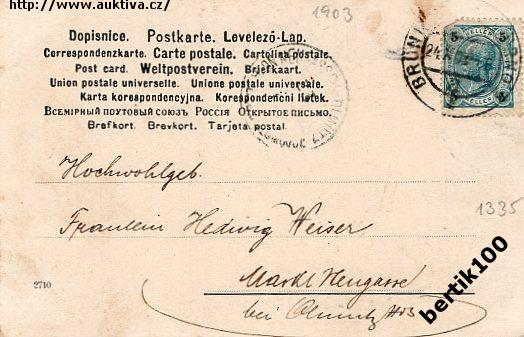 http://www.auktiva.cz/
1903
Dopisnice. Postkarte. Levelező-Lap.
Correspondenzkarte. Carte postale. Cartolina postale.
Post card. Weltpostverein. Briefkaart.
Union postale universelle. Unione postale universale.
Karta korespondencyjna. Korespondenční lístek.
Всемірный почтовый союзъ Россія Открытое письмо.
Brefkort. Brevkort. Tarjeta postal.
BRÜNN
Hochwohlgeb.
1335
Fraulein Hedwig Weiser
Markt Neugasse
bei Olmütz
2710
bertik100